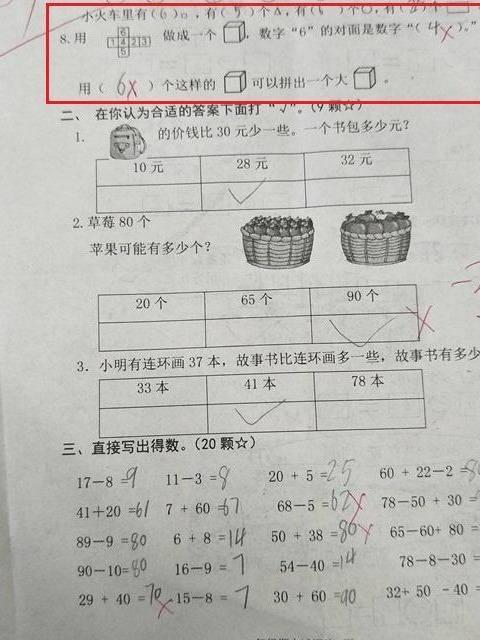 小火车里有(6)□，有(5)个△，有( )个○，有( )个
8.用 6 1 4 2 3 5 做成一个 ，数字“6”的对面是数字“(4)”。
用(6)个这样的 可以拼出一个大 。
二、在你认为合适的答案下面打“√”。(9颗☆)
1. 的价钱比30元少一些。一个书包多少元?
10元 28元 32元
√
2.草莓80个
苹果可能有多少个?
20个 65个 90个
√
3.小明有连环画37本，故事书比连环画多一些，故事书有多少
33本 41本 78本
√
三、直接写出得数。(20颗☆)
17-8=9 11-3=8 20+5=25 60+22-2=80
41+20=61 7+60=67 68-5=62 78-50+30=
89-9=80 6+8=14 50+38=80 65-60+80=
90-10=80 16-9=7 54-40=14 78-8-30=
29+40=70 15-8=7 30+60=90 32+50-40=